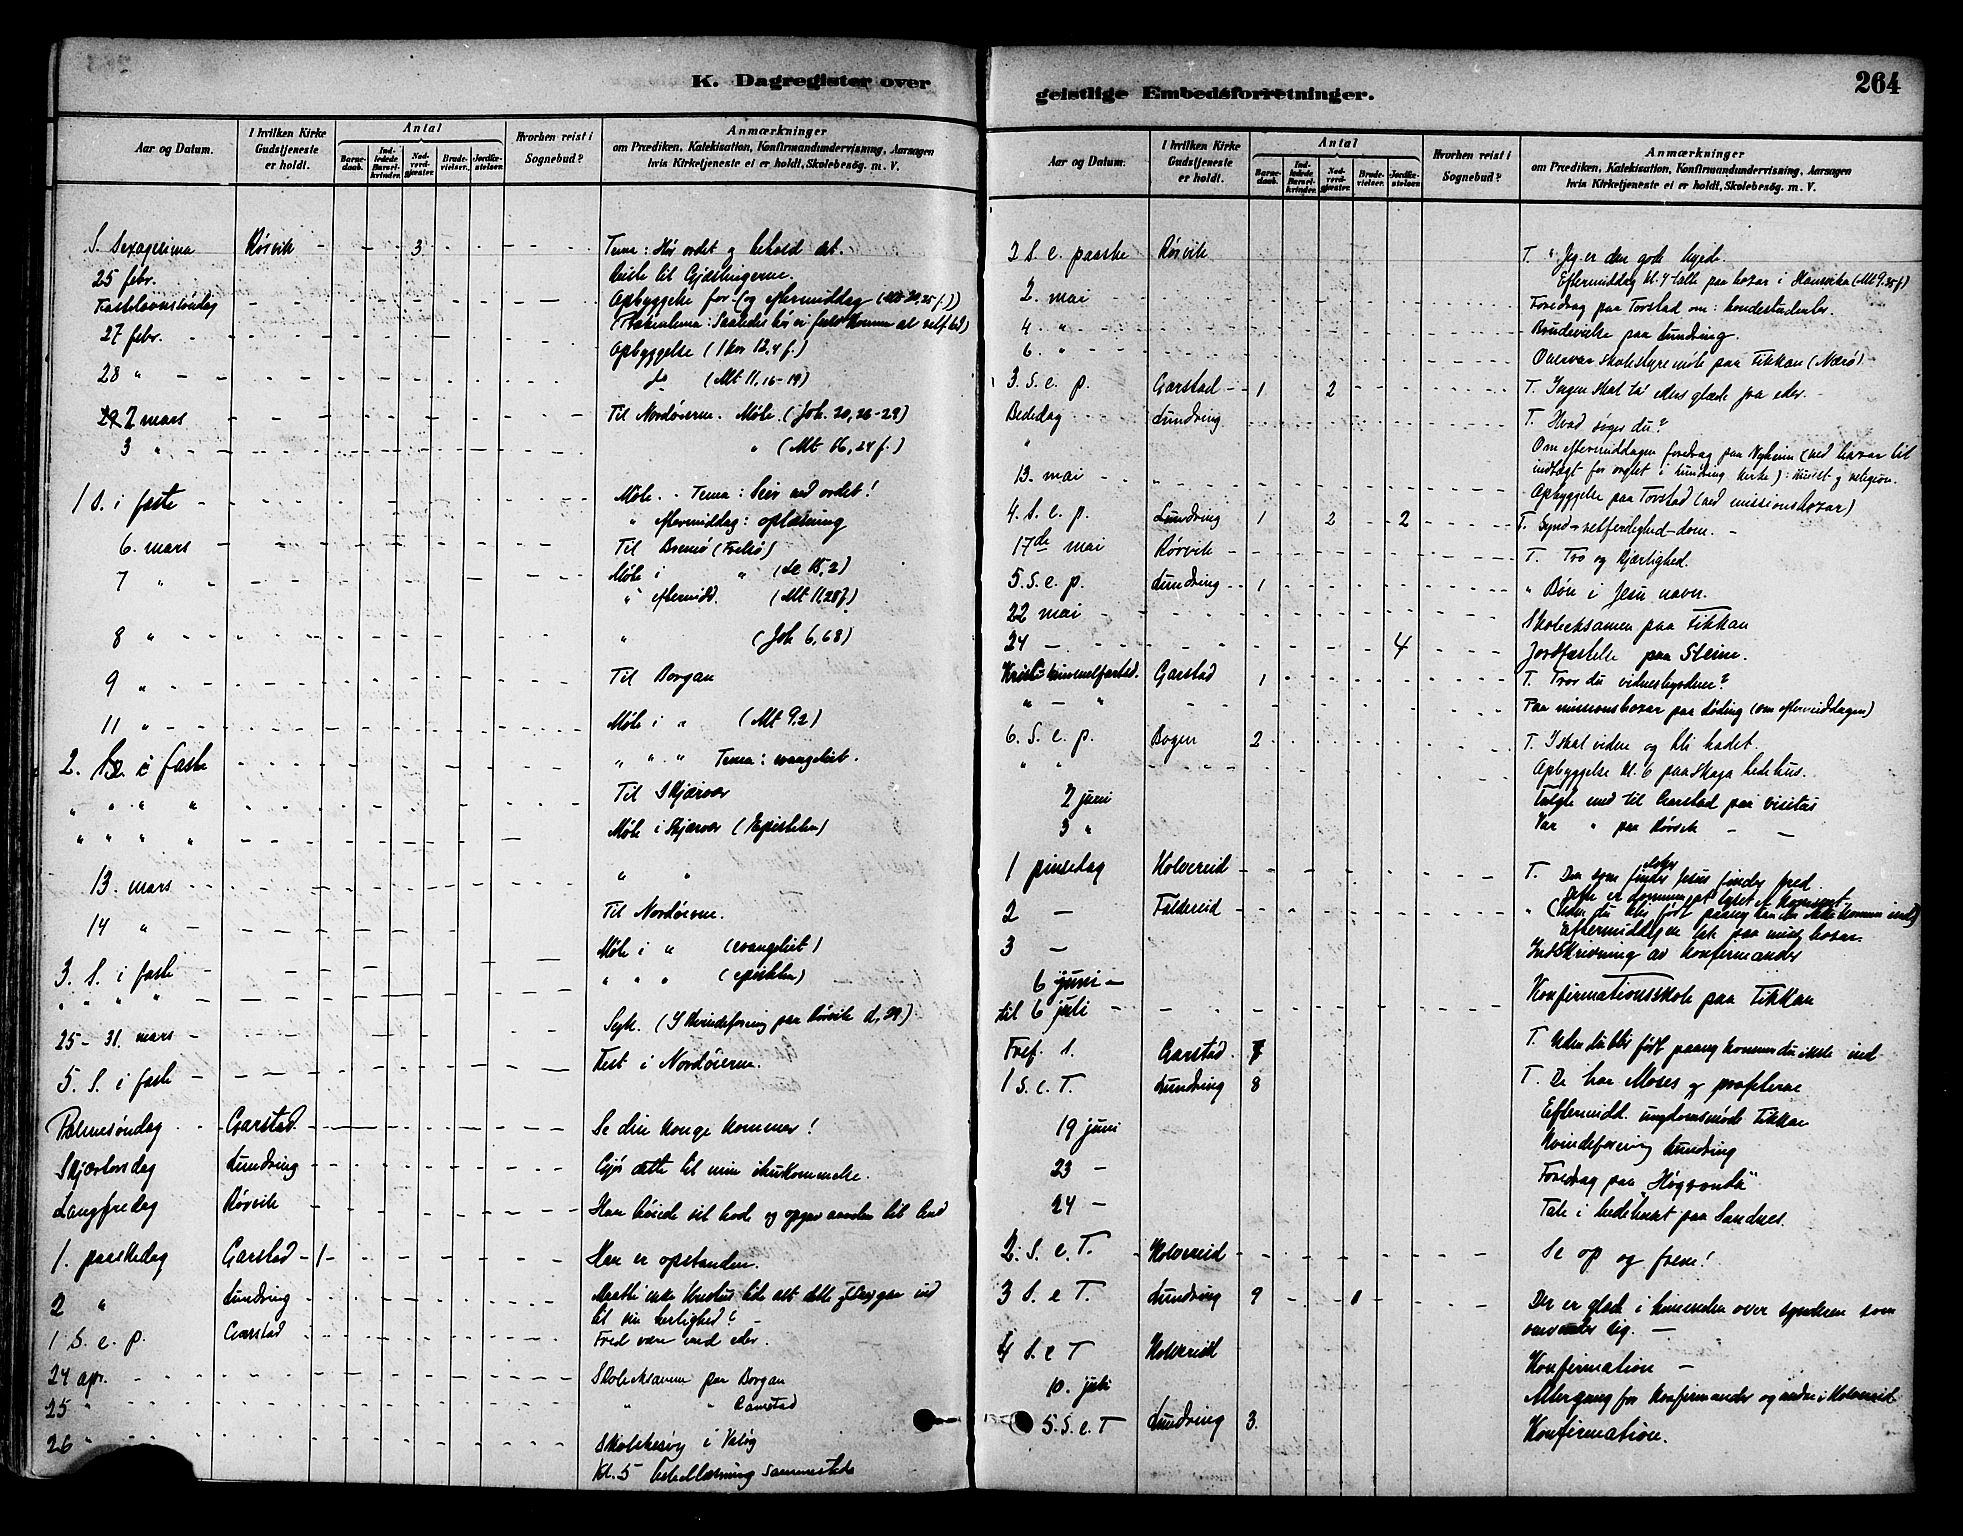 K. Dagregister over
Aar og Datum.
I hvilken Kirke Gudstjeneste er holdt.
Antal
Barnedaab.
Indledede Barselkvinder.
Nadverdgjæster.
Brudevielser.
Jordfæstelser.
Hvorhen reist i Sognebud?
Anmærkninger
om Prædiken, Katekisation, Konfirmandundervisning, Aarsagen
hvis Kirketjeneste ei er holdt, Skolebesøg. m. V.
S. Sexagesima Rørvik 3. Tema: Hør ordet og behold det.
25 febr. Reiste til Gjæslingerne.
Fastelavnssøndag Opbyggelse for- (og eftermiddag
27 febr.
Opbyggelse (1 kor 12,4 f.)
28 " do (Mt 11,16-19)
2 mars Til Nordøierne. Møte. (Joh. 20,26-29)
3 " " (Mt 16,24 f.)
1 S. i faste Møte. Tema: Seir ved ordet!
" eftermiddag: oplæsning
6. mars Til Bremø
7 " Møte i " (Lc 15,2)
" eftermidd. (Mt 11,28f)
8 " " (Joh 6,68)
9 " Til Borgan
11 " Møte i " (Mt 9,2)
2. S. i faste " " " Tema: evangeliet.
" " " " Til Skjærvær
" " " " Møte i Skjærvær (Epistelen)
13. mars " "
14 " Til Nordøierne.
3. S. i faste Møte i " (evangeliet)
" " " " " " " (epistelen)
25-31. mars Syk. (I Kvindeforening paa Rørvik d. 29.)
5. S. i faste Fest i Nordøierne.
Palmesøndag Garstad Se din konge kommer!
Skjærtorsdag Lundring Gjør dette til min ihukommelse.
Langfredag Rørvik Han bøiede sit hode og opgav aanden til Gud
1. paaskedag Garstad 1 Han er opstanden.
2 " Lundring Maatte ikke Kristus lide alt dette og saa gaa ind
til sin herlighed?
1 S. e. p. Garstad Fred være med eder.
24 apr. Skoleeksamen paa Borgan
25 " " " Ramstad
26 " Skolebesøg i Valøy
Kl. 5 bibellæsning sammesteds
geistlige Embedsforretninger.
264
Aar og Datum.
I hvilken Kirke Gudstjeneste er holdt.
Antal
Barnedaab.
Indledede Barselkvinder.
Nadverdgjæster.
Brudevielser.
Jordfæstelser.
Hvorhen reist i Sognebud?
Anmærkninger
om Prædiken, Katekisation, Konfirmandundervisning, Aarsagen
hvis Kirketjeneste ei er holdt, Skolebesøg. m. V.
2 S. e. paaske Rørvik T. " Jeg er den gode hyrde.
Eftermiddag kl. 4 talte paa bazar i Hansvika (Mt 9.35f)
2. mai Foredrag paa Torstad om: bondestudenter.
4 " Brudevielse paa Lundring.
6. " skolestyremøte paa Tikkan (Nærø).
3. S. e. p. Garstad 1 2 T. Ingen skal ta' eders glæde fra eder.
Bededag Lundring T. Hvad søger du?
" Om eftermiddagen foredrag paa Nyheim (ved bazar til
indtægt for orglet i Lundring kirke): musik og religion.
13. mai Opbyggelse paa Torstad (ved missionsbazar)
4. S. e. p. Lundring 1 2 2 T. Synd-retferdighed-dom.
17de mai Rørvik T. Tro og Kjærlighed.
5. S. e. p. Lundring 1 " Bøn i Jesu navn.
22 mai Skoleeksamen paa Tikkan
24 - 4 Jordfæstelse paa Steine.
Kristi himmelfartsd. Garstad 1 T. Tror du vidnesbyrdene?
" - " Paa missionsbazar paa Løding (om eftermiddagen)
6. S. e. p. Bogen 2 T. I skal vidne og bli hadet
" " Opbyggelse kl. 6 paa Skaga bedehus.
2 juni Fulgte med til Garstad paa visitas
3 " Var " paa Rørvik - -
1 pinsedag Kolvereid T. Den som elsker Jesus finder fred.
2 - Foldereid
Eftermiddagen
3 - Indskrivning av konfirmander
6 juni -
til 6 juli Konfirmationsskole paa Tikkan
Tref. s. Garstad 7 T. Uden du blir født paany kommer du ikke ind
1 S. e. T. Lundring 8 T. De har Moses og profeterne
Eftermidd. ungdomsmøte Tikkan
19 juni Kvindeforening Lundring
23 - Foredrag paa "Høgronda"
24 - Tale i bedehuset paa Sandnes.
2. S. e. T. Kolvereid Se op og frem!
3 S. e T. Lundring 9 1 Der er glæde i himmelen over synderen som
omvender sig.
4 S. e T Kolvereid Konfirmation -
10. juli Altergang for konfirmander og andre i Kolvereid
5. S. e. T Lundring 3. Konfirmation.